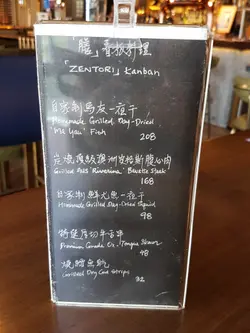 「膳」看板料理
「ZENTORI」Kanban
自家制馬友一夜干
Homemade Grilled Day-Dried
'Ma Yau' Fish
208
炭燒 澳洲安格斯腹心肉
Grilled 'Riverina' Bavette Steak
168
自家制鮮尤魚一夜干
Homemade Grilled Day-Dried Squid
98
厚切牛舌串
Premium Ox-Tongue Skewer
48
燒鱈魚乾
Grilled Dry Cod Strips